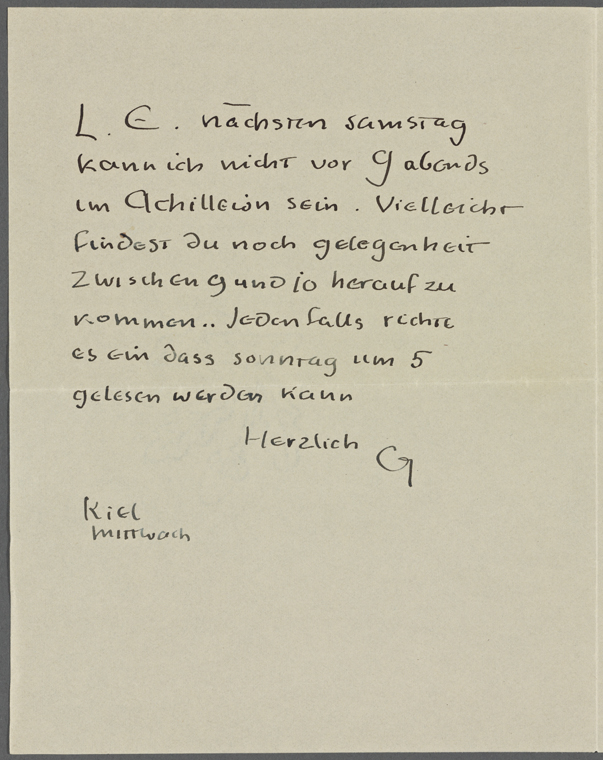 L. E. nächsten samstag
kann ich nicht vor 9 abends
im Achilleion sein. Vielleicht
findest du noch gelegenheit
zwischen 9 und 10 herauf zu
kommen.. Jedenfalls richte
es ein dass sonntag um 5
gelesen werden kann
Herzlich
G
Kiel
mittwoch